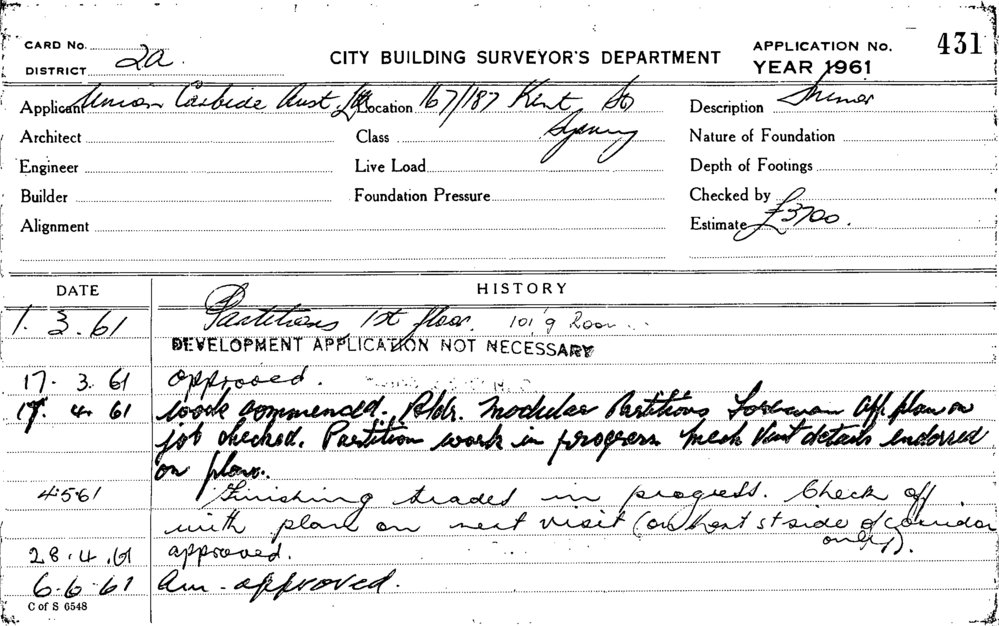 CARD No. 2a.
DISTRICT
CITY BUILDING SURVEYOR'S DEPARTMENT
APPLICATION No. 431
YEAR 1961
Applicant Union Carbide Aust. Ltd Location 167/187 Kent St Sydney Description Minor
Architect Class Nature of Foundation
Engineer Live Load Depth of Footings
Builder Foundation Pressure Checked by
Alignment Estimate £3700.
DATE HISTORY
1.3.61 Partitions, 1st floor.
DEVELOPMENT APPLICATION NOT NECESSARY
17.3.61 approved.
17.4.61 Work commenced. Bldr. Modular Partitions App. plan on
job checked. Partition work in progress Mech Vent details endorsed
on plan.
4.5.61 Finishing trades in progress. Check off
with plan on next visit (on Kent st side of corridor
only).
28.4.61 approved.
6.6.61 am. approved.
C of S 6548